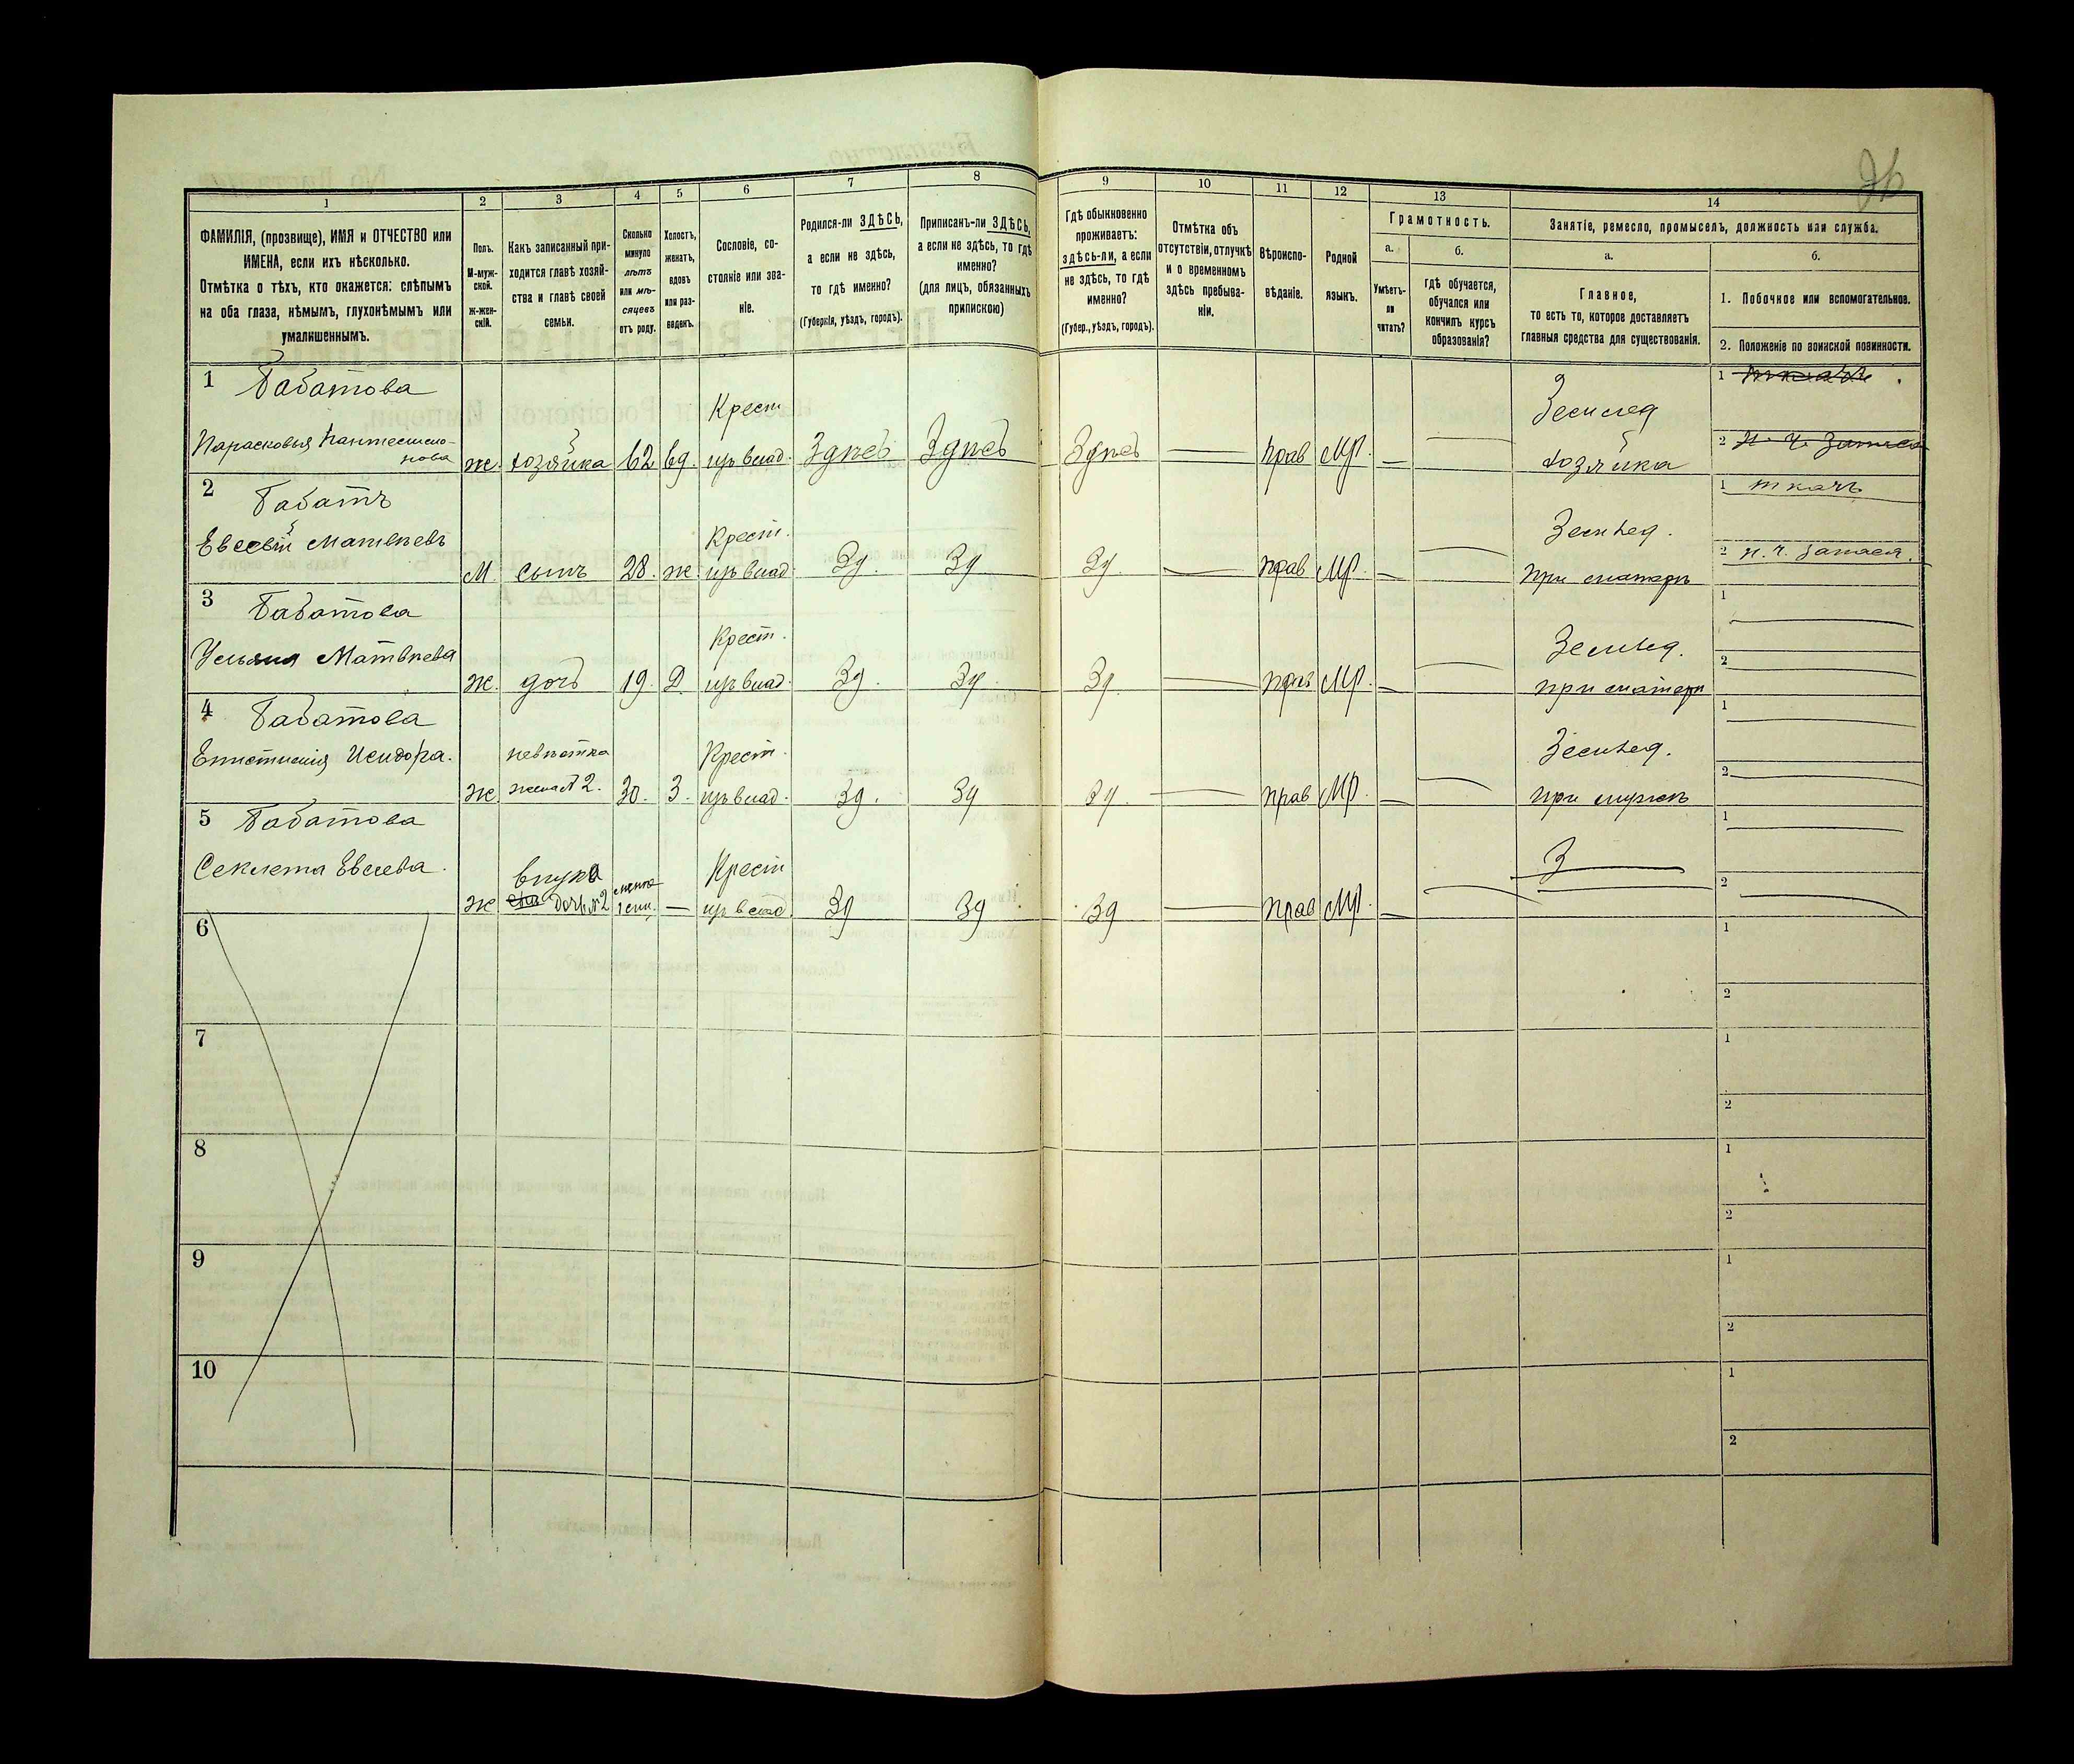 26
1 2 3 4 5 6 7 8 9 10 11 12 13 14
ФАМИЛІЯ, (прозвище), ИМЯ и ОТЧЕСТВО или
ИМЕНА, если ихъ нѣсколько.
Отмѣтка о тѣхъ, кто окажется: слѣпымъ
на оба глаза, нѣмымъ, глухонѣмымъ или
умалишеннымъ.
Полъ.
М-муж-
ской.
ж-жен-
скій.
Какъ записанный при-
ходится главѣ хозяй-
ства и главѣ своей
семьи.
Сколько
минуло
лѣтъ
или мѣ-
сяцевъ
отъ роду.
Холостъ,
женатъ,
вдовъ
или раз-
веденъ.
Сословіе, со-
стояніе или зва-
ніе.
Родился-ли ЗДѢСЬ,
а если не здѣсь,
то гдѣ именно?
(Губернія, уѣздъ, городъ).
Приписанъ-ли ЗДѢСЬ,
а если не здѣсь, то гдѣ
именно?
(для лицъ, обязанныхъ
припискою)
Гдѣ обыкновенно
проживаетъ:
здѣсь-ли, а если
не здѣсь, то гдѣ
именно?
(Губер., уѣздъ, городъ).
Отмѣтка объ
отсутствіи, отлучкѣ
и о временномъ
здѣсь пребыва-
ніи.
Вѣроиспо-
вѣданіе.
Родной
языкъ.
Грамотность.
а.
Умѣетъ-
ли
читать?
б.
гдѣ обучается,
обучался или
кончилъ курсъ
образованія?
Занятіе, ремесло, промыселъ, должность или служба.
а.
Главное,
то есть то, которое доставляетъ
главныя средства для существованія.
б.
1. Побочное или вспомогательное.
2. Положеніе по воинской повинности.
1 Бабатова
Парасковья Пантелеймо-
нова
ж. хозяйка 62 вд. Крест
изъ влад. Здѣсь Здѣсь Здѣсь — прав МР. — — Землед
хозяйка
1 ткачъ
2 н. ч. запаса
2 Бабатъ
Евсевій Матвѣевъ
М. сынъ 28. ж. Крест.
изъ влад. Зд. Зд Зд. — прав МР. — — Землед.
при матери
1 ткачъ
2 н. ч. запаса.
3 Бабатова
Ульяна Матвѣева
ж. дочь 19. Д. Крест.
изъ влад. Зд. Зд. Зд. — прав МР. — — Землед.
при матери
1 —
2 —
4 Бабатова
Епистимія Исидора.
ж. невѣстка
жена № 2. 30. З. Крест.
изъ влад. Зд. Зд Зд. — прав МР. — — Землед.
при мужѣ
1 —
2 —
5 Бабатова
Секлета Евсеева.
ж внука
дочь № 2 — Крест
изъ влад Зд Зд Зд — прав МР. — — З —
1 —
2 —
6
1
2
7
1
2
8
1
2
9
1
2
10
1
2